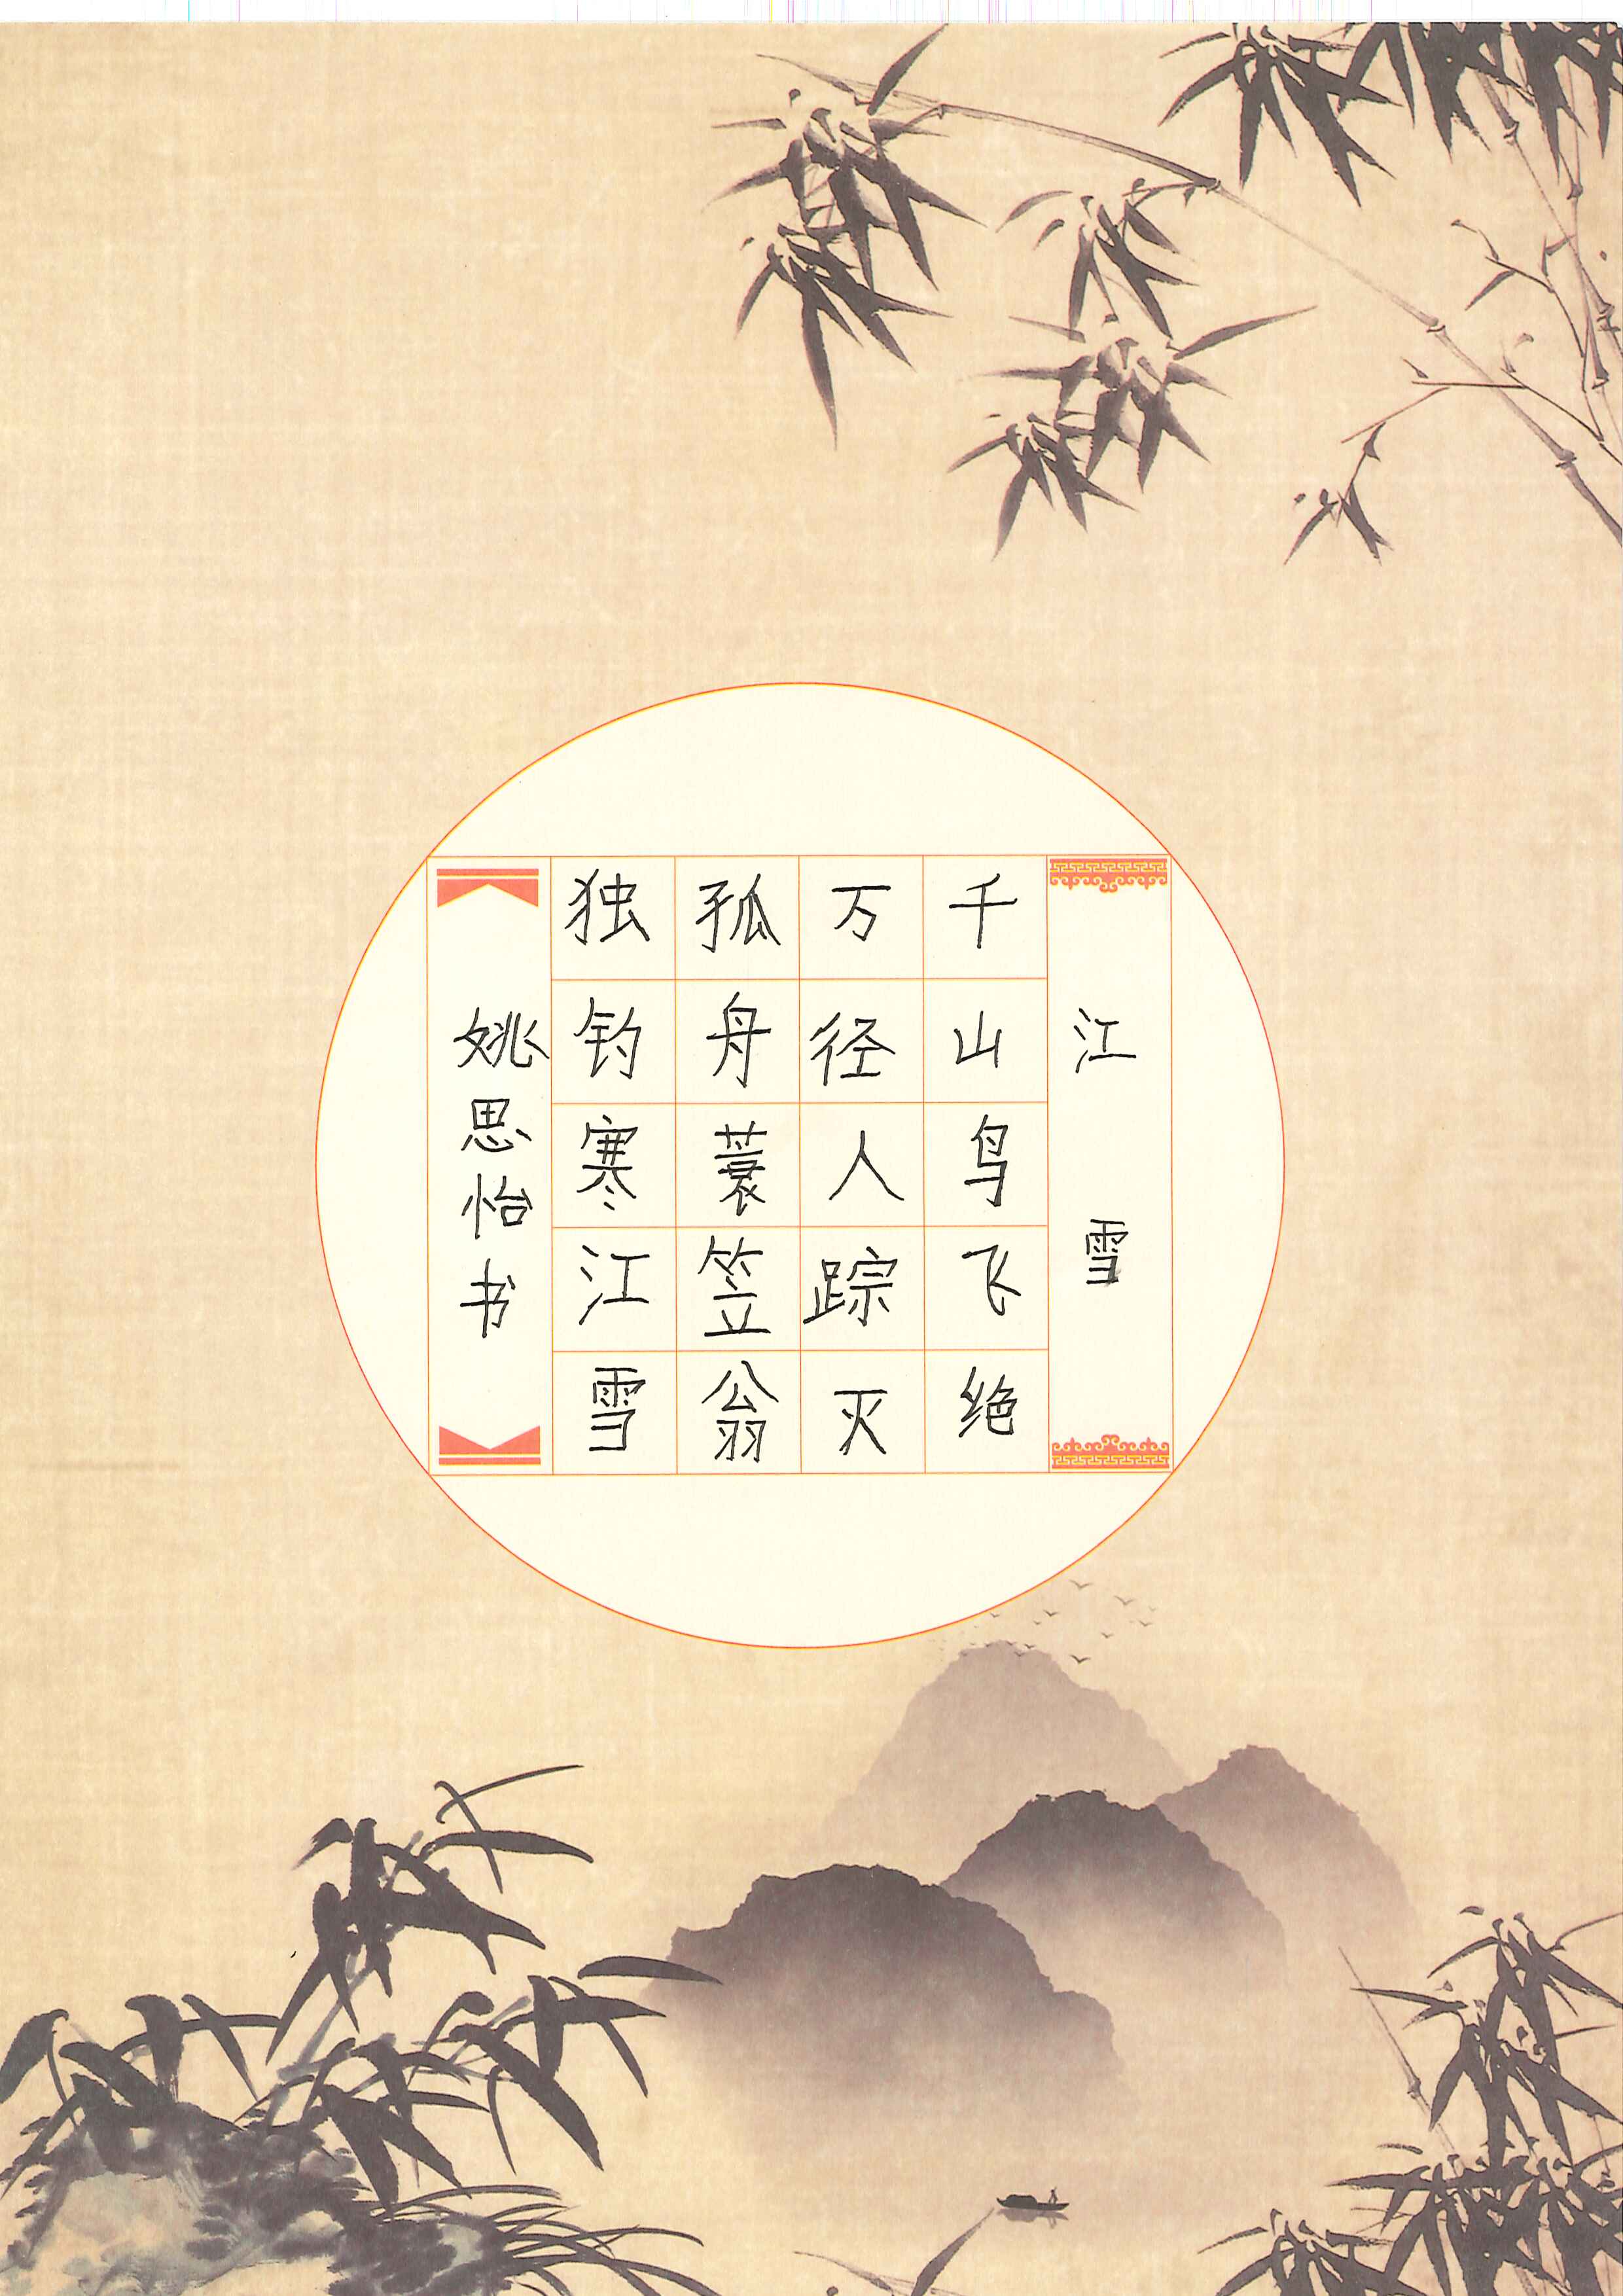 江雪
千山鸟飞绝
万径人踪灭
孤舟蓑笠翁
独钓寒江雪
姚思怡书